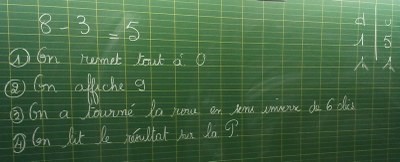 8 - 3 = 5
① On remet tout à 0
② On affiche 9
③ On a tourné la roue en sens inverse de 6 clics
④ On lit le résultat sur la P.
d u
1 5